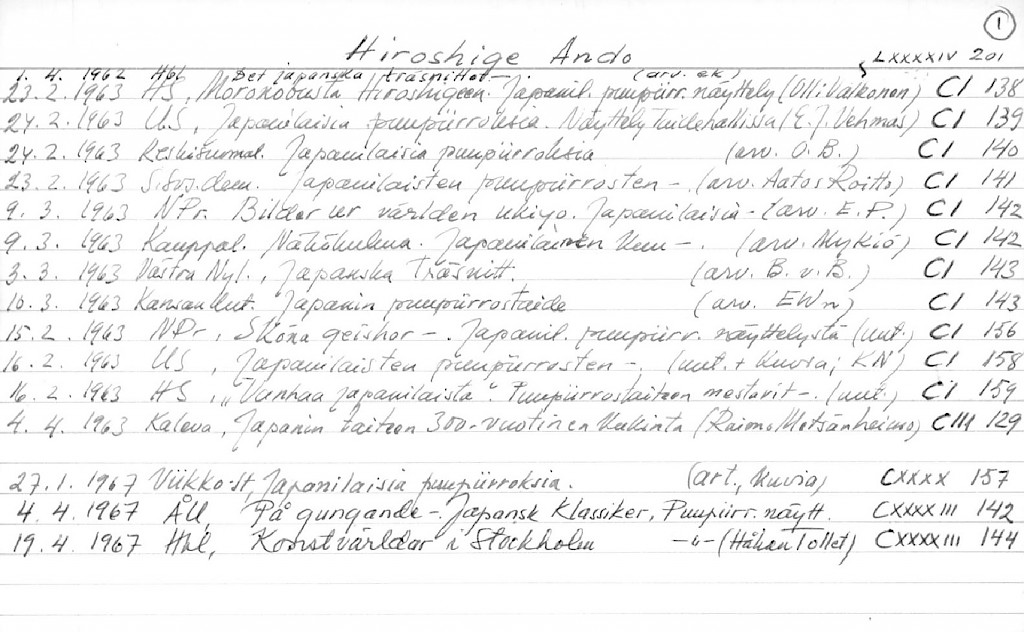 1
Hiroshige Ando
1. 4. 1962 Hbl Det japanska träsnittet -. (arv. ek) LXXXXIV 201
23. 2. 1963 HS, Moronobusta Hiroshigeen. Japanil. puupiirr. näyttely (Olli Valkonen) CI 138
24. 2. 1963 US, Japanilaisia puupiirroksia. Näyttely Taidehallissa (E.J. Vehmas) CI 139
24. 2. 1963 Keskisuomal. Japanilaisia puupiirroksia (arv. O.B.) CI 140
23. 2. 1963 S.Sos.dem. Japanilaisten puupiirrosten -. (arv. Aatos Roitto) CI 141
9. 3. 1963 NPr. Bilder ur världen ukiyo. Japanilaisia - (arv. E.P.) CI 142
9. 3. 1963 Kauppal. Näkökulma. Japanilainen -. (arv. Mykiö) CI 142
3. 3. 1963 Västra Nyl., Japanska träsnitt. (arv. B. v. B.) CI 143
10. 3. 1963 Kansan Uut. Japanin puupiirrostaide (arv. EWn) CI 143
15. 2. 1963 NPr, Sköna geishor -. Japanil. puupiirr. näyttelystä (uut.) CI 156
16. 2. 1963 US, Japanilaisten puupiirrosten -. (uut. + kuvia; KN) CI 158
16. 2. 1963 HS, "Vanhaa japanilaista". Puupiirrostaiteen mestarit -. (uut.) CI 159
4. 4. 1963 Kaleva, Japanin taiteen 300-vuotinen kukinta (Raimo Metsänheimo) CIII 129
27. 1. 1967 Viikko-St, Japanilaisia puupiirroksia. (art., kuvia) CXXXX 157
4. 4. 1967 ÅU, På gungande -. Japansk klassiker. Puupiirr. näytt. CXXXXIII 142
19. 4. 1967 Hbl, Konstvärldar i Stockholm -"- (Håkan Tollet) CXXXXIII 144